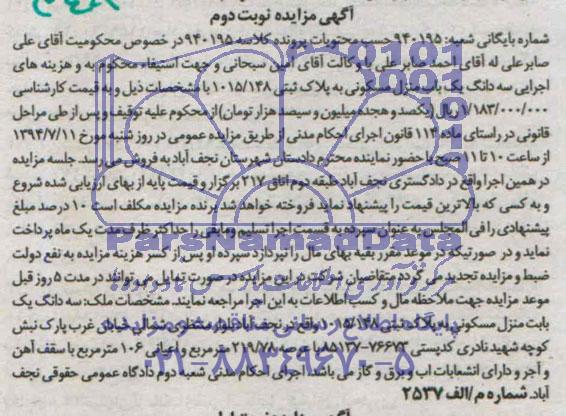 آگهی مزایده نوبت دوم
شماره بایگانی شعبه: ۹۴۰۱۹۵ حسب محتویات پرونده کلاسه ۹۴۰۱۹۵ در خصوص محکومیت آقای علی
صابر علی له آقای احمد صابر علی با وکالت آقای امین سبحانی و جهت استیفاء محکوم به و هزینه های
اجرایی سه دانگ یک باب منزل مسکونی به پلاک ثبتی ۱۰۱۵/۱۴۸ با مشخصات ذیل و به قیمت کارشناسی
۱/۱۸۳/۰۰۰/۰۰۰ ریال (یکصد و هجده میلیون و سیصد هزار تومان) از محکوم علیه توقیف و پس از طی مراحل
قانونی در راستای ماده ۱۱۴ قانون اجرای احکام مدنی از طریق مزایده عمومی در روز شنبه مورخ ۱۳۹۴/۷/۱۱
از ساعت ۱۰ تا ۱۱ صبح با حضور نماینده محترم دادستان شهرستان نجف آباد به فروش می رسد. جلسه مزایده
در همین اجرا واقع در دادگستری نجف آباد طبقه دوم اتاق ۲۱۷ برگزار و قیمت پایه از بهای ارزیابی شده شروع
و به کسی که بالاترین قیمت را پیشنهاد نماید فروخته خواهد شد برنده مزایده مکلف است ۱۰ درصد مبلغ
پیشنهادی را فی المجلس به عنوان سپرده به قسمت اجرا تسلیم و مابقی را حداکثر ظرف مدت یک ماه پرداخت
نماید و در صورتیکه در موعد مقرر بقیه بهای مال را نپردازد سپرده او پس از کسر هزینه مزایده به نفع دولت
ضبط و مزایده تجدید می گردد متقاضیان شرکت در این مزایده در صورت تمایل می توانند در مدت ۵ روز قبل
موعد مزایده جهت ملاحظه مال و کسب اطلاعات به این اجرا مراجعه نمایند. مشخصات ملک: سه دانگ یک
بابت منزل مسکونی به پلاک ثبتی ۱۰۱۵/۱۴۸ واقع در نجف آباد بلوار منتظری شمالی خیابان غرب پارک نبش
کوچه شهید نادری کدپستی ۷۶۶۷۳-۸۵۱۳۷ با عرصه ۲۱۹/۷۸ مترمربع و اعیانی ۱۰۶ مترمربع با سقف آهن
و آجر و دارای انشعابات اب و برق و گاز می باشد. اجرای احکام مدنی شعبه دوم دادگاه عمومی حقوقی نجف
آباد. شماره م/الف ۲۵۳۷
ParsNamadData
۰۲۱-۸۸۳۴۹۶۷۰-۵